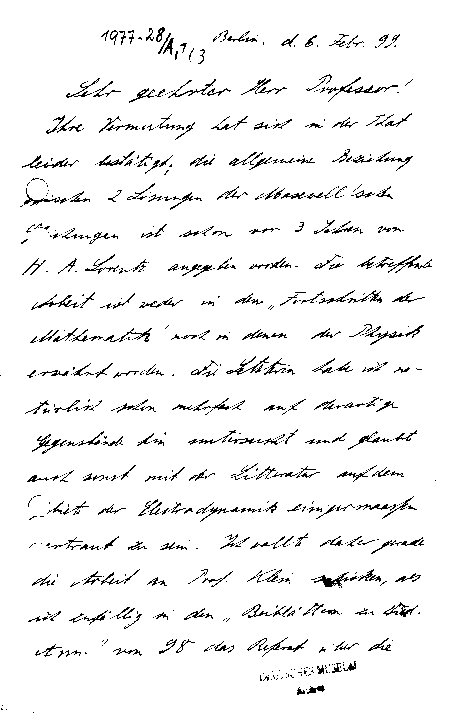 1977-28/A,1(3
Berlin. d. 6. Febr. 99.
Sehr geehrter Herr Professor!
Ihre Vermutung hat sich in der That
leider bestätigt, die allgemeine Beziehung
zwischen 2 Lösungen der Maxwell'schen
Gleichungen ist schon vor 3 Jahren von
H. A. Lorentz angegeben worden. Die betreffende
Arbeit ist weder in den „Fortschritten der
Mathematik" noch in denen der Physik
erwähnt worden. Die Letztern habe ich na-
türlich schon mehrfach auf derartige
Gegenstände hin untersucht und glaubte
auch sonst mit der Litteratur auf dem
Gebiet der Electrodynamik einigermaassen
vertraut zu sein. Ich wollte daher gerade
die Arbeit an Prof. Klein schicken, als
ich zufällig in den „Beiblättern zu Wied.
Ann." von 98 das Referat über die
DEUTSCHES MUSEUM